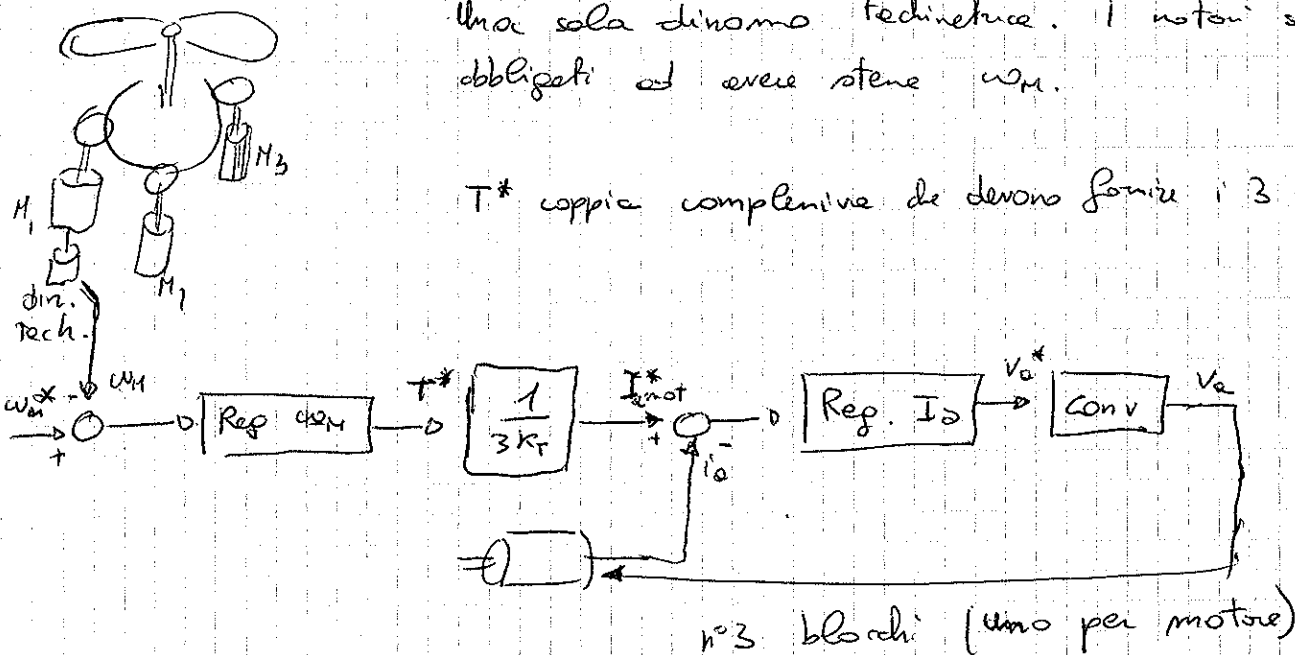 Una sola dinamo tachimetrica. I motori s
obbligati ad avere stessa ωM.
M3
T* coppia complessiva che devono fornire i 3
M1
M2
din.
tach.
ωM* - ωM
+
Reg ωM
T*
1
3KT
I*amot
+ -
ia
Reg. Ia
Va*
Conv
Va
n°3 blocchi (uno per motore)